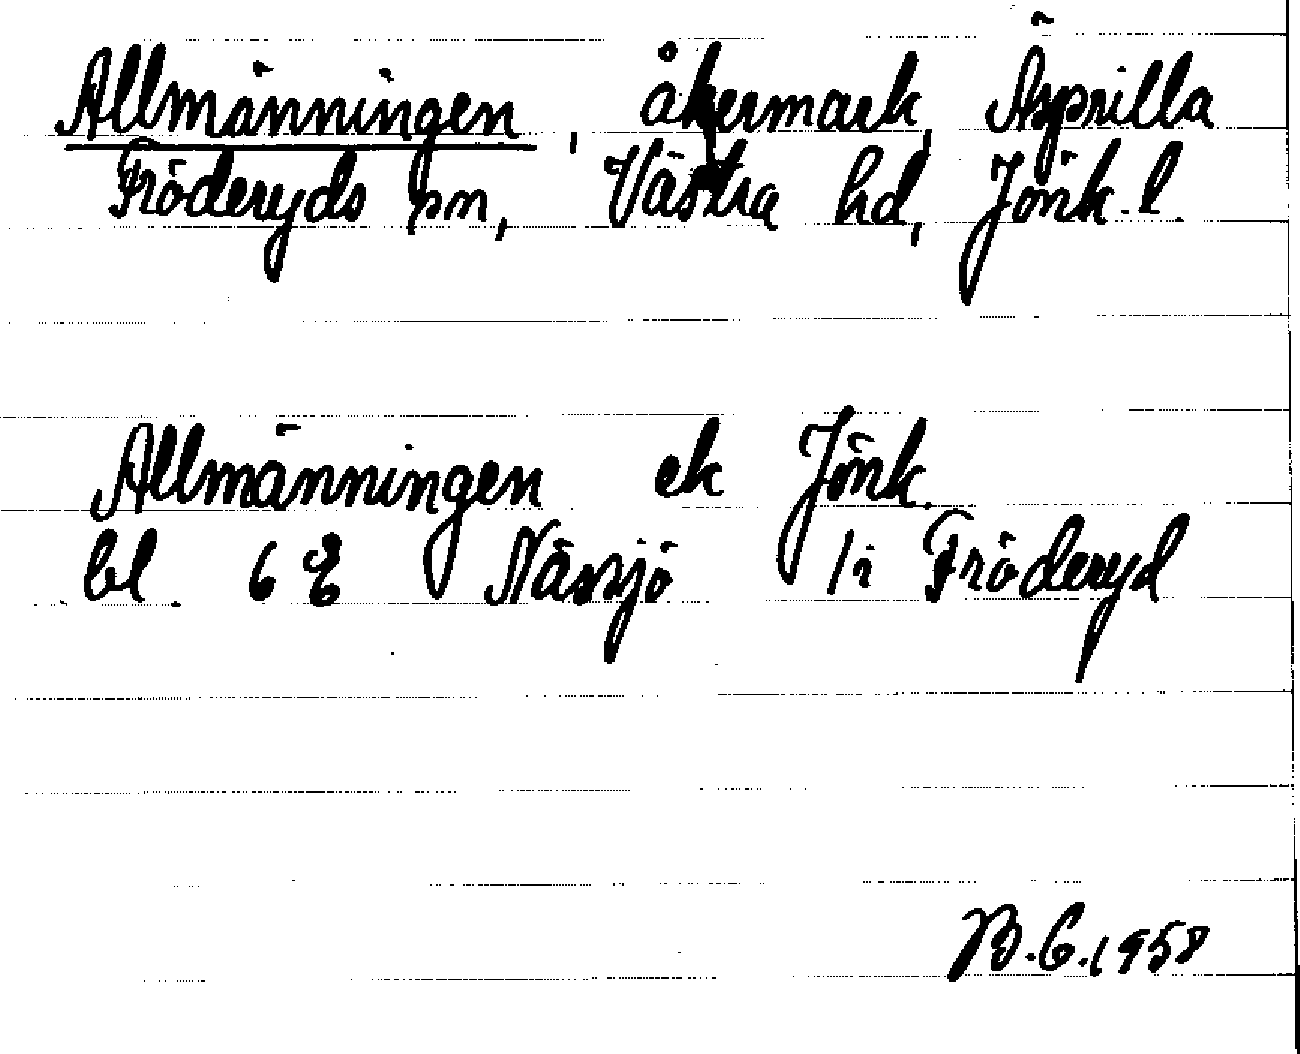 Allmänningen, åkermark, Äsprilla
Fröderyds sn, Västra hd, Jönk. l.
Allmänningen ek Jönk.
bl. 6 E Nässjö /i Fröderyd
B.G. 1958